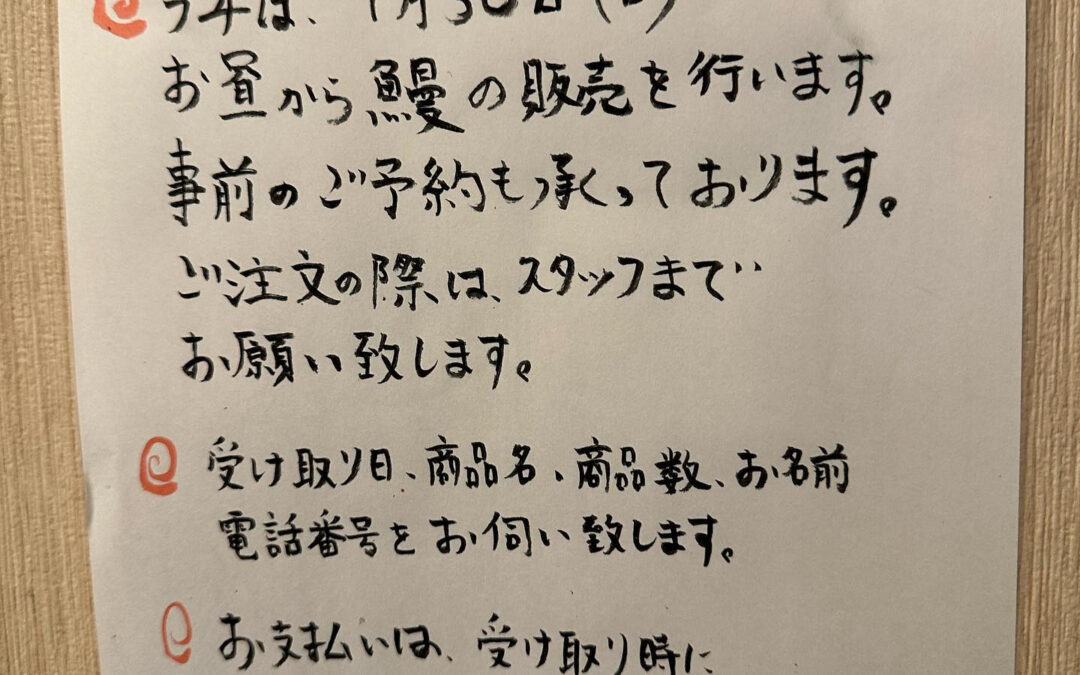 今年は、
お昼から鰻の販売を行います。
事前のご予約も承くっております。
ご注文の際は、スタッフまで
お願い致します。
受け取り日、商品名、商品数、お名前
電話番号をお伺い致します。
お支払いは、受け取り時に